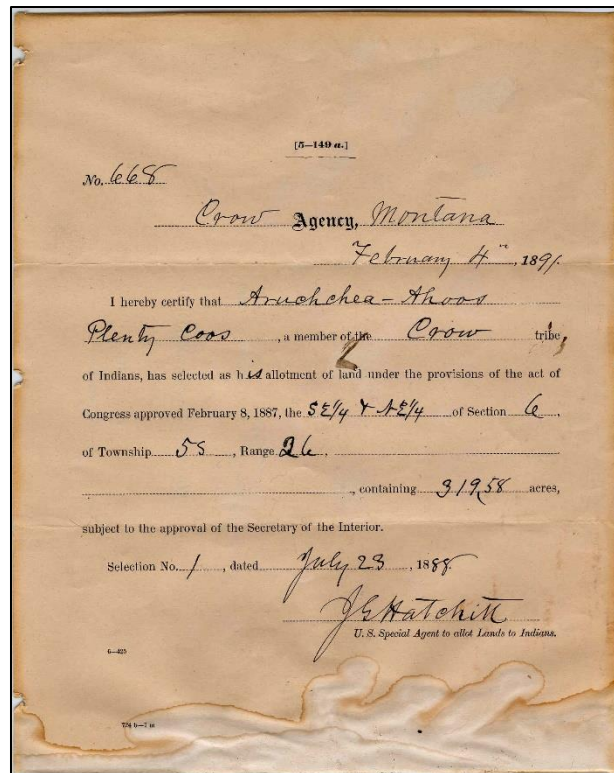 [5—149 a.]
No. 668
Crow Agency, Montana
February 4th, 1891.
I hereby certify that Aruchchea - Ahoos
Plenty Coos, a member of the Crow tribe,
of Indians, has selected as his allotment of land under the provisions of the act of
Congress approved February 8, 1887, the SE1/4 & NE1/4 of Section 6,
of Township 5S, Range 26,
, containing 319.58 acres,
subject to the approval of the Secretary of the Interior.
Selection No. 1, dated July 23, 1888.
J G Hatchitt
U. S. Special Agent to allot Lands to Indians.
6—425